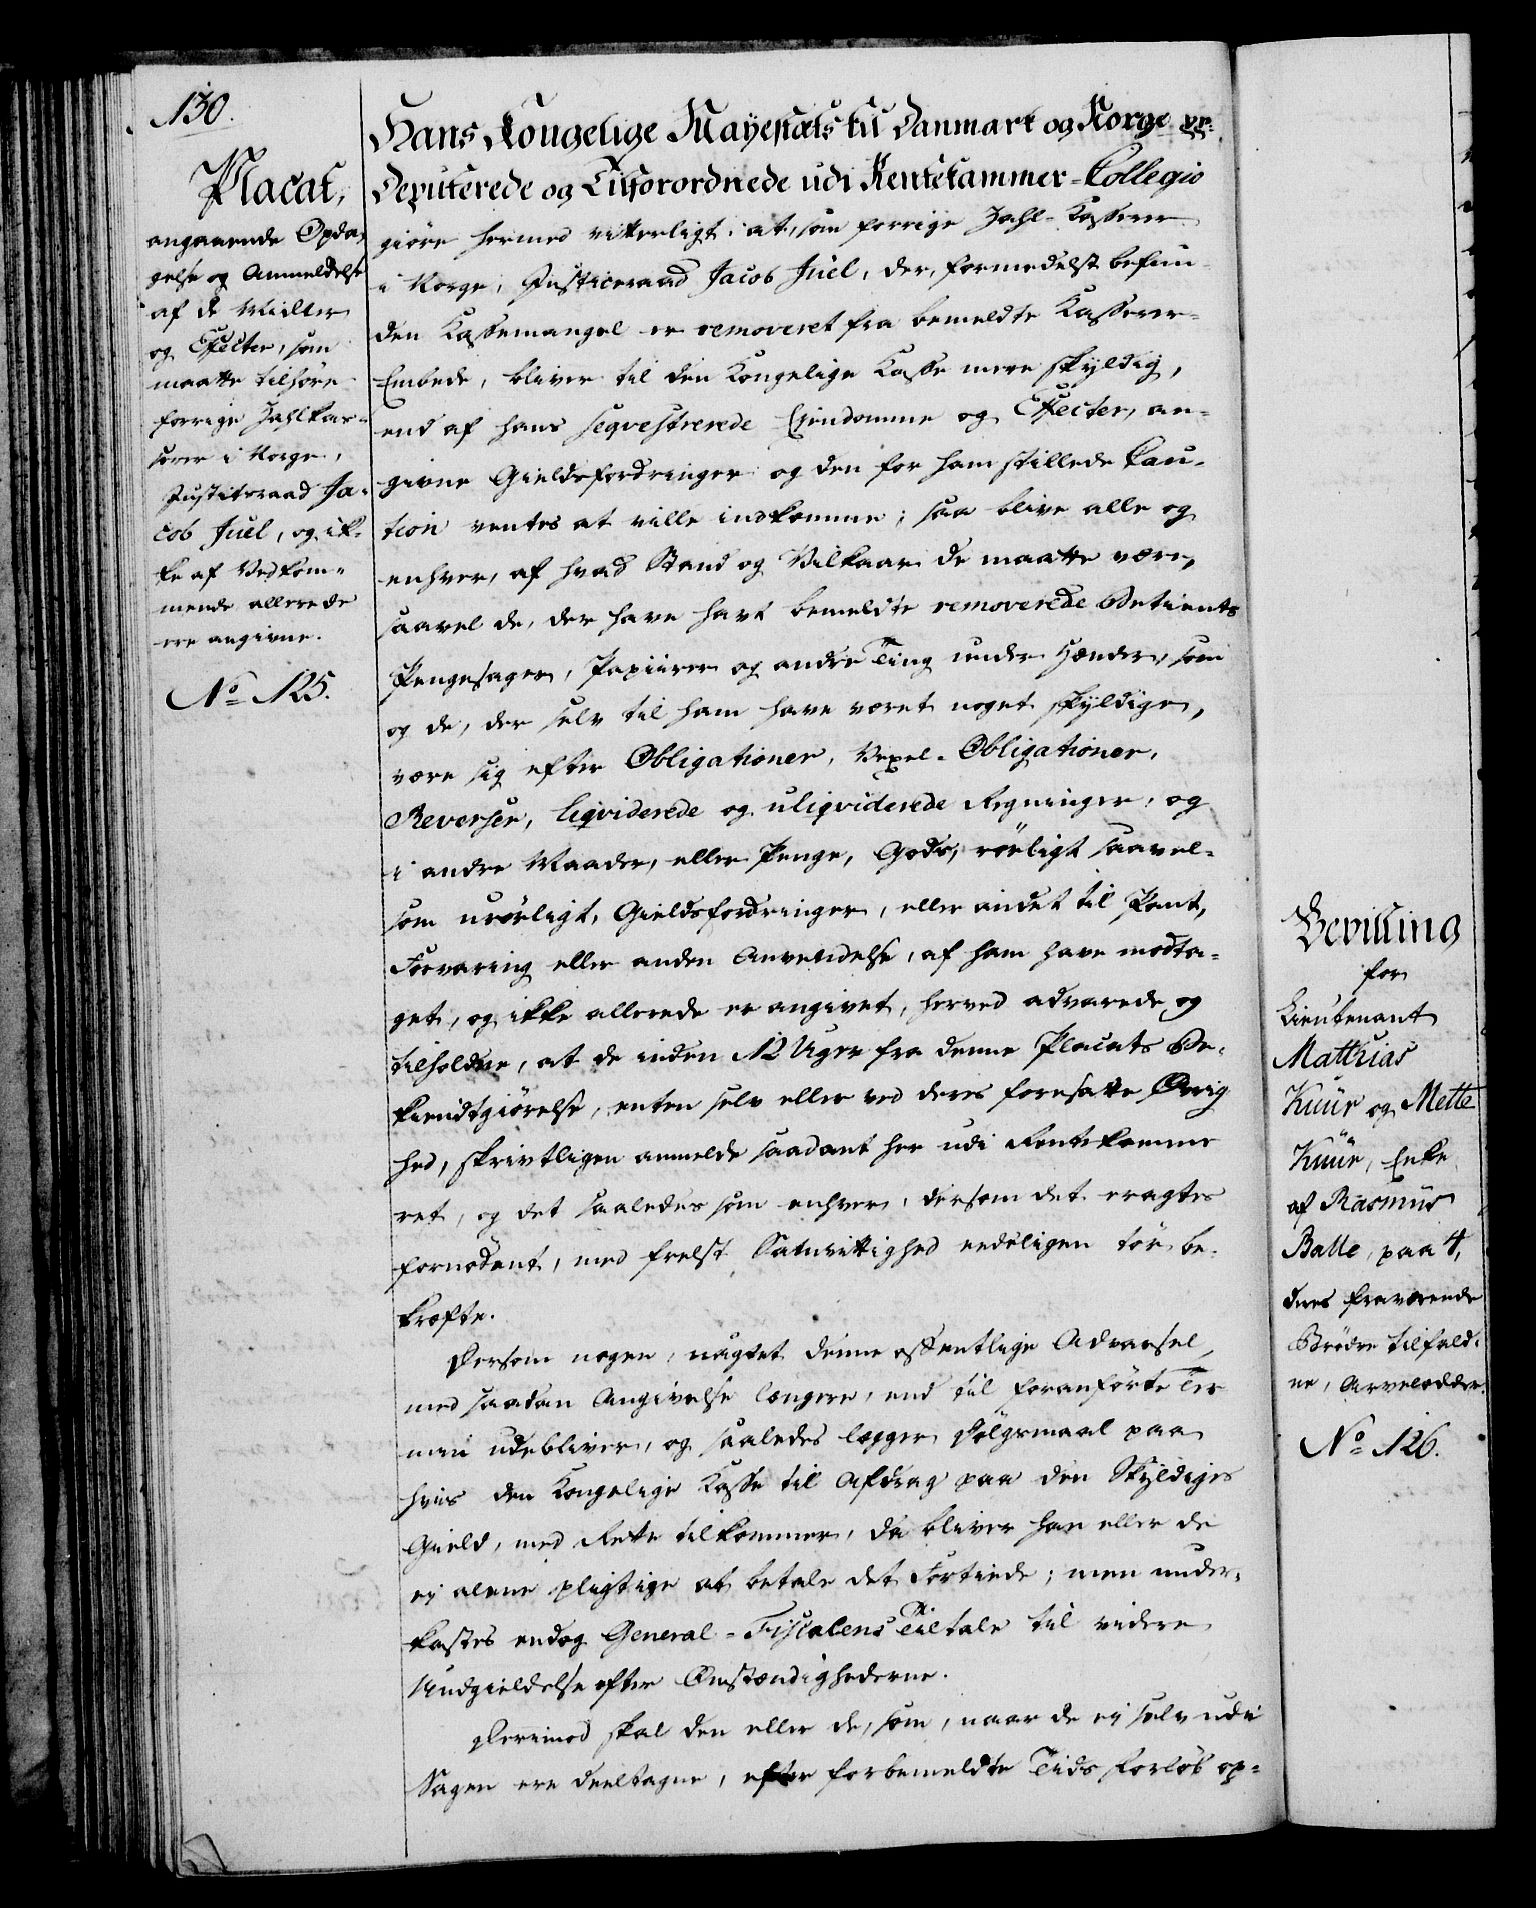 130.
Placat,
angaaende Opda-
gelse og Anmeldelse
af de Midler
og Effecter, som
maatte tilhøre
forrige Zahlkas-
serer i Norge,
Justitsraad Ja-
cob Juel, og ik-
ke af Vedkom-
mende allerede
ere angivne.
No 125.
Hans Kongelige Mayestæts til Danmark og Norge pp.
Deputerede og Tilforordnede udi Rentekammer-Collegio
giøre hermed vitterligt: at, som forrige Zahl-Kasserer
i Norge, Justiceraad Jacob Juel, der, formedelst befun-
den Kassemangel er removeret fra bemeldte Kasserer-
Embede, bliver til den Kongelige Kasse mere skyldig,
end af hans seqvestrerede Eiendomme og Effecter, an-
givne Gieldsfordringer og den for ham stillede Cau-
tion ventes at ville indkomme; saa blive alle og
enhver, af hvad Stand og Vilkaar de maatte være,
saavel de, der have havt bemeldte removerede Betients
Pengesager, Papiirer og andre Ting under Hænder, som
og de, der selv til ham have været noget skyldige,
være sig efter Obligationer, Vexel-Obligationer,
Reverser, liqviderede og uliqviderede Regninger, og
i andre Maader, eller Penge, Gods, rørligt saavel-
som urørligt, Gieldsfordringer, eller andet til Pant,
Forvaring eller anden Anvendelse, af ham have modta-
get, og ikke allerede er angivet, herved advarede og
tilholdne, at de inden 12 Uger fra denne Placats Be-
kiendtgiørelse, enten selv eller ved deres foresatte Øvrig
hed, skrivtligen anmelde saadant her udi Rentekamme
ret, og det saaledes som enhver, dersom det eragtes
fornødent, med frelst Samvittighed eedeligen tør be-
kræfte.
Dersom nogen, uagtet denne offentlige Advarsel,
med saadan Angivelse længere, end til foranførte Ter
min udebliver, og saaledes lægger Dølgsmaal paa
hvis den Kongelige Kasse til Afdrag paa den Skyldiges
Gield, med Rette tilkommer, da bliver han eller de
ej alene pligtige at betale det Fortiede; men under-
kastes endog General-Fiscalens Tiltale til videre
Undgieldelse efter Omstændighederne.
Derimod skal den eller de, som, naar de ej selv udi
Sagen ere deeltagne, efter forbemeldte Tids Forløb op-
Bevilling
for
Lieutenant
Matthias
Kuur og Mette
Kuur, Enke
af Rasmus
Balle, paa 4,
deres fraværende
Brødre tilfald-
ne, Arvelodder.
No 126.